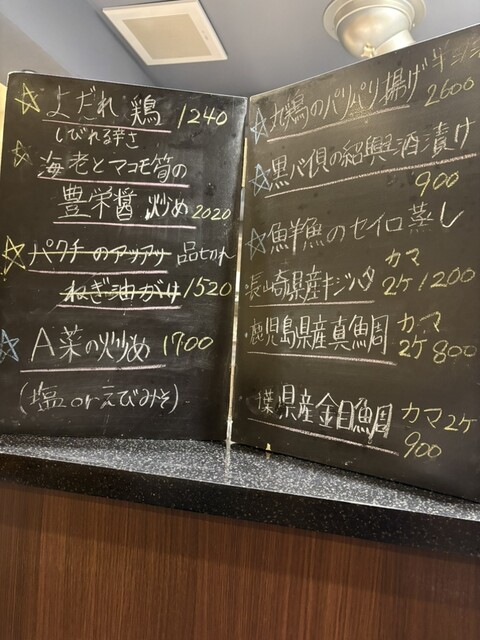 ☆ よだれ鶏 1240
しびれる辛さ
☆ 海老とマコモ筍の
豊栄醤 炒め 2020
☆ パクチーのアツアツ 品切れ
ねぎ油がけ 1520
☆ A菜の炒め 1700
(塩orえびみそ)
☆ 丸鶏のパリパリ揚げ
2600
☆ 黒バイ貝の紹興酒漬け
900
☆ 鮮魚のセイロ蒸し
・長崎県産キジハタ カマ
2ケ1200
・鹿児島県産真鯛 カマ
2ケ800
葉県産金目鯛 カマ2ケ
900